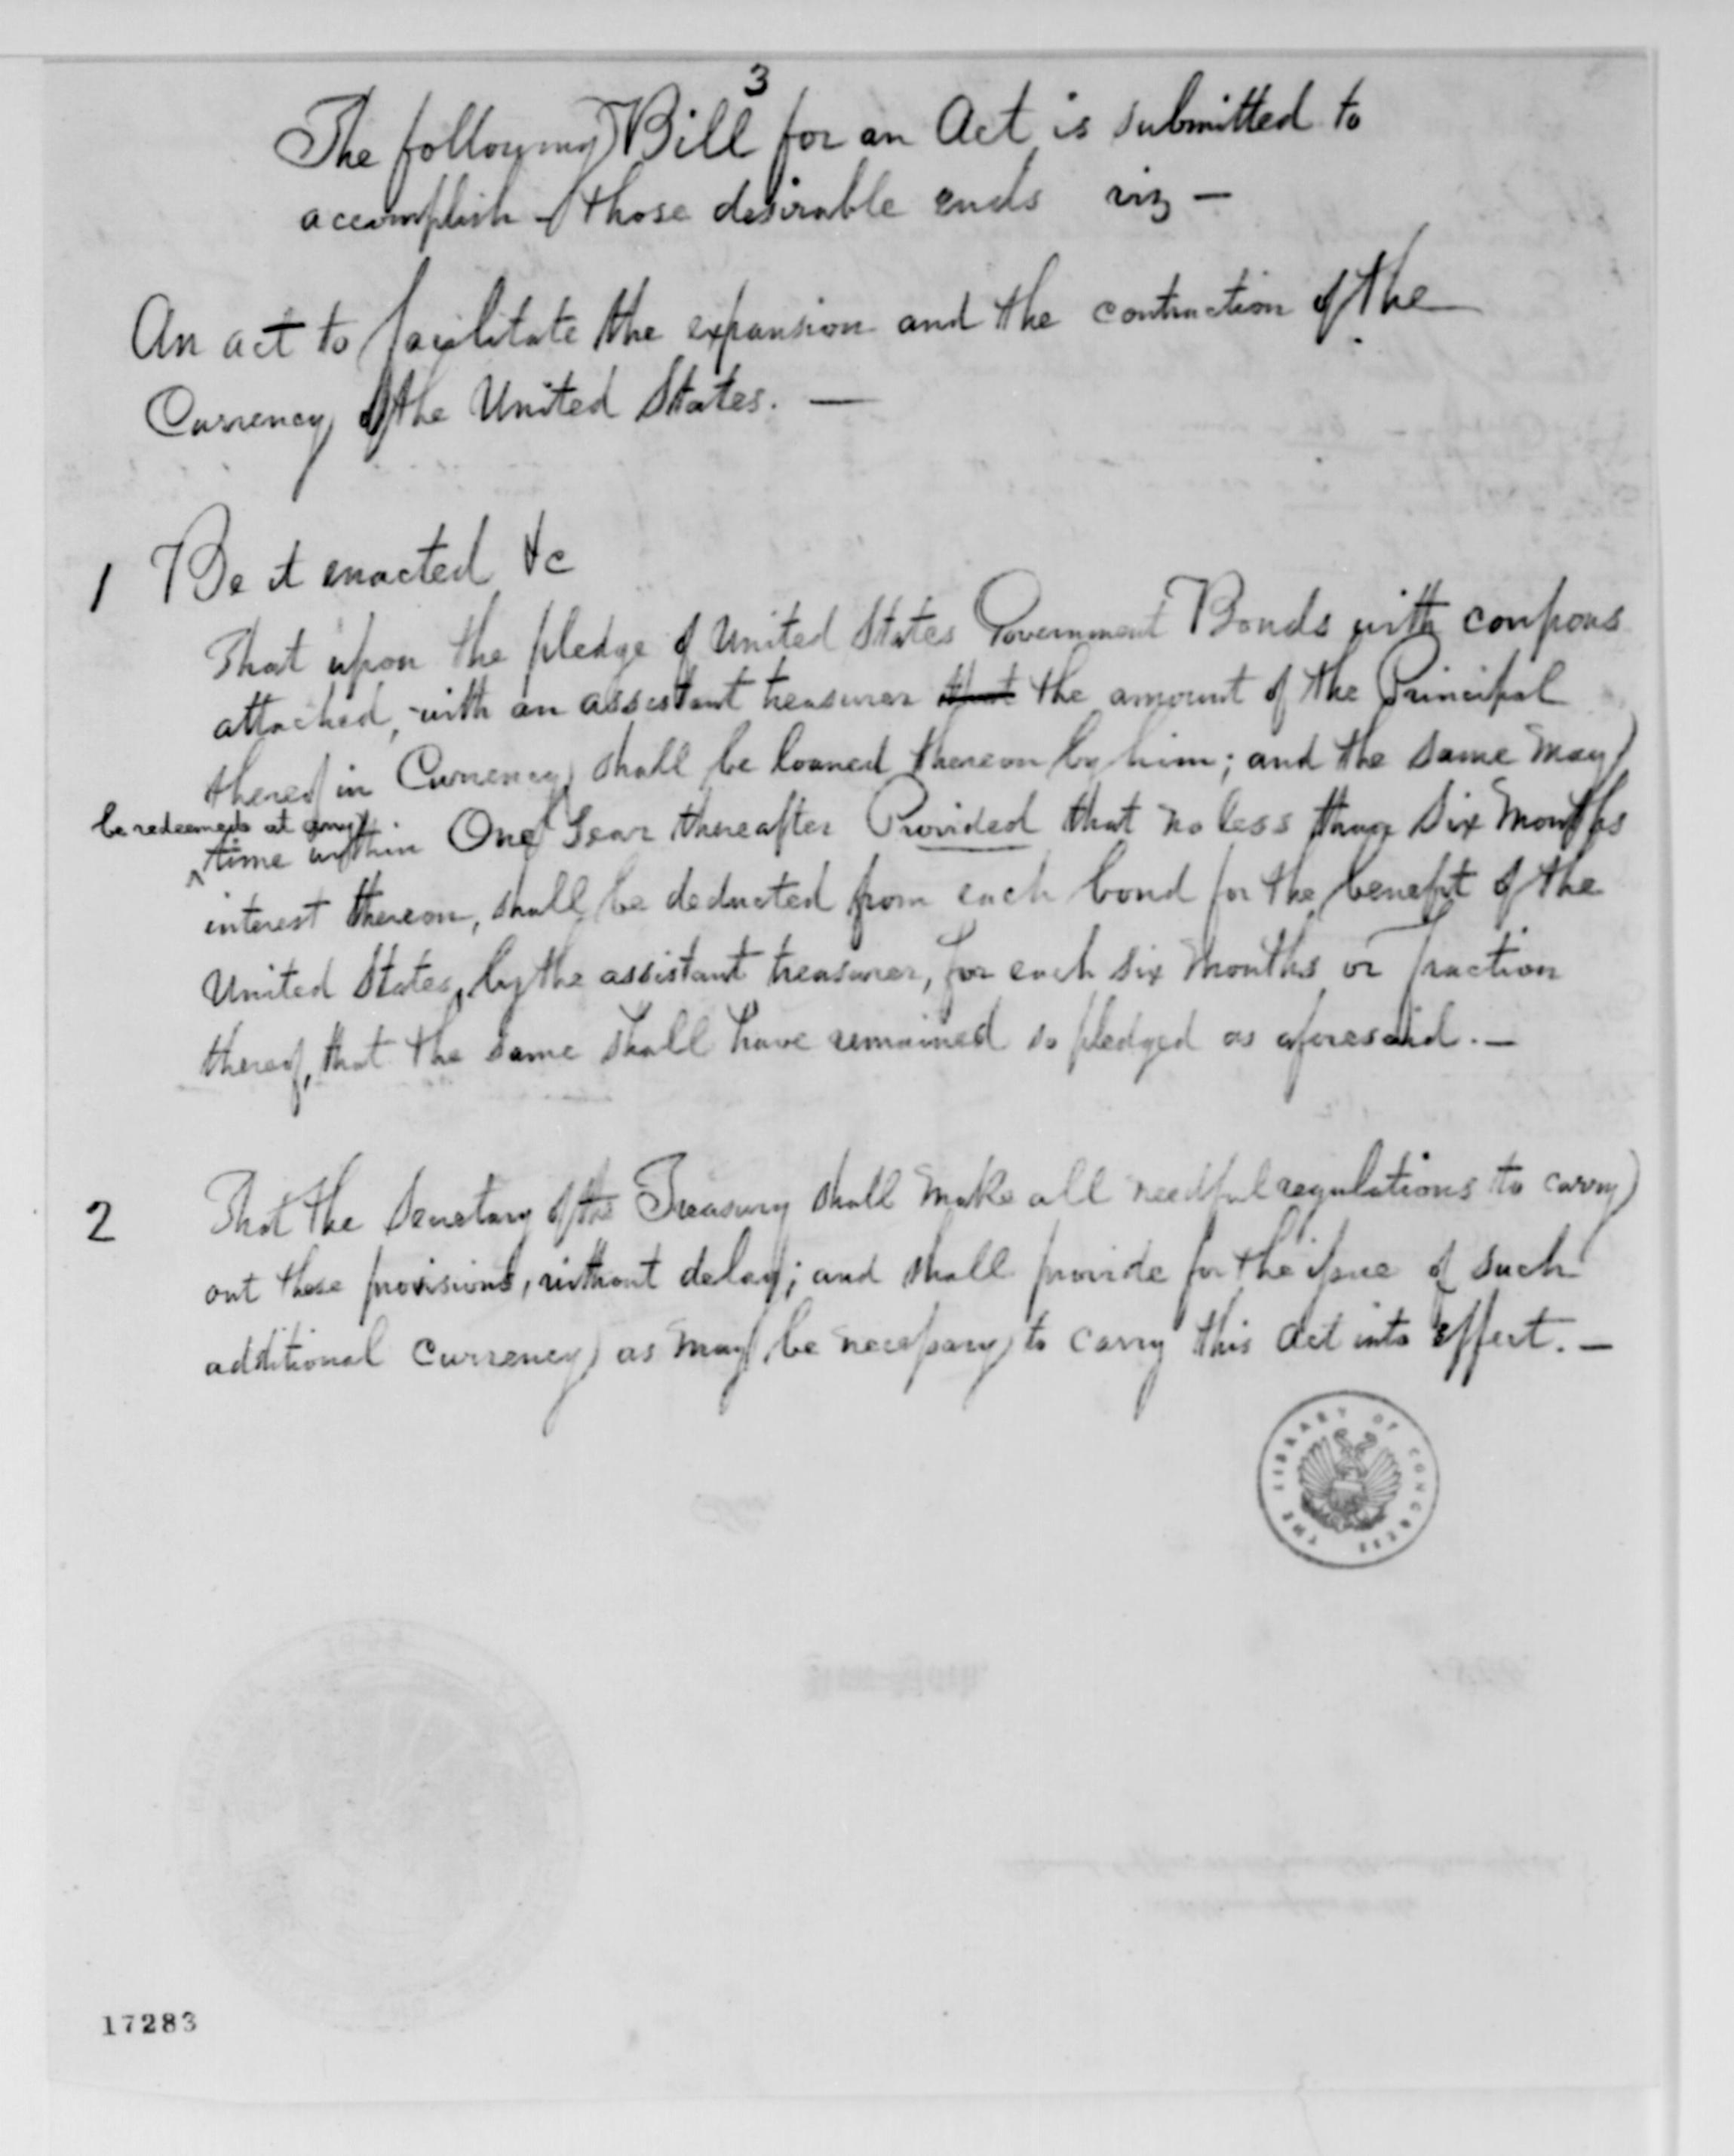 3
The following Bill for an Act is submitted to
accomplish those desirable ends viz —
An act to facilitate the expansion and the contraction of the
Currency of the United States. —
1 Be it enacted &c
That upon the pledge of United States Government Bonds with coupons
attached, with an assistant treasurer that the amount of the Principal
thereof in Currency shall be loaned thereon by him; and the same may
be redeemed at any
time within One Year thereafter Provided that no less than Six Months
interest thereon, shall be deducted from each bond for the benefit of the
United States, by the assistant treasurer, for each six months or fraction
thereof, that the same shall have remained so pledged as aforesaid. —
2 That the Secretary of the Treasury shall make all needful regulations to carry
out these provisions, without delay; and shall provide for the issue of such
additional Currency as may be necessary to carry this Act into effect. —
THE LIBRARY OF CONGRESS
17283